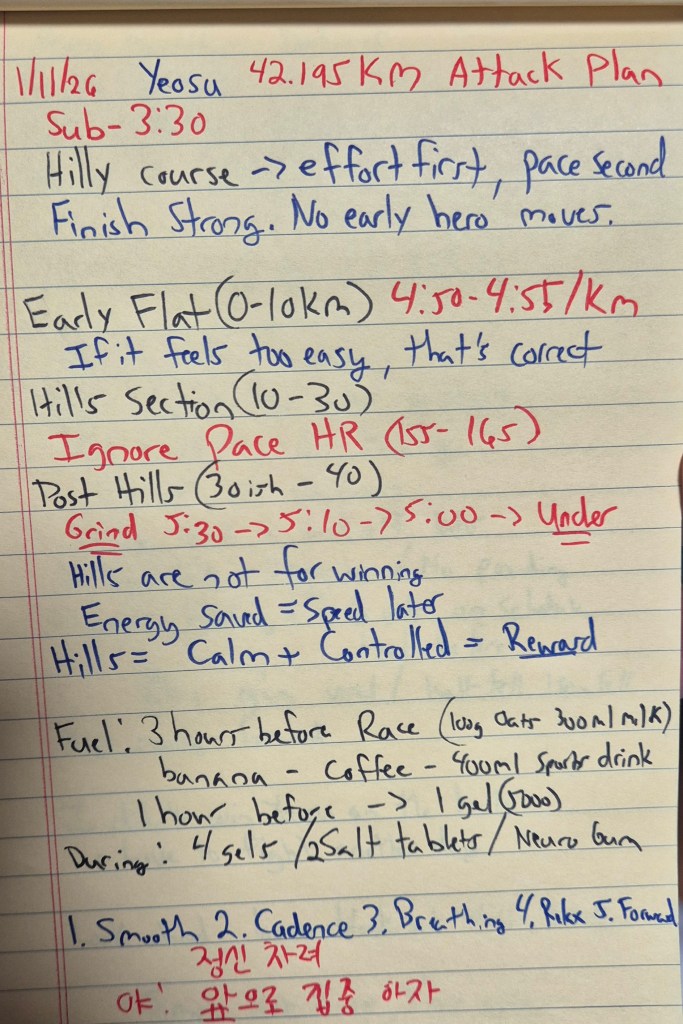 1/11/26 Yeosu 42.195 Km Attack Plan
Sub-3:30
Hilly course -> effort first, pace second
Finish Strong. No early hero moves.
Early Flat (0-10km) 4:50-4:55/Km
If it feels too easy, that's correct
Hills Section (10-30)
Ignore Pace HR (155-165)
Post Hills (30ish - 40)
Grind 5:30 -> 5:10 -> 5:00 -> Under
Hills are not for winning
Energy Saved = Speed later
Hills = Calm + Controlled = Reward
Fuel: 3 hours before Race (100g Oats 300ml milk)
banana - Coffee - 400ml Sports drink
1 hour before -> 1 gel (5000)
During: 4 gels /2 Salt tablets / Neuro Gum
1. Smooth 2. Cadence 3. Breathing 4. Relax 5. Forward
정신 차려
야! 앞으로 집중 하자